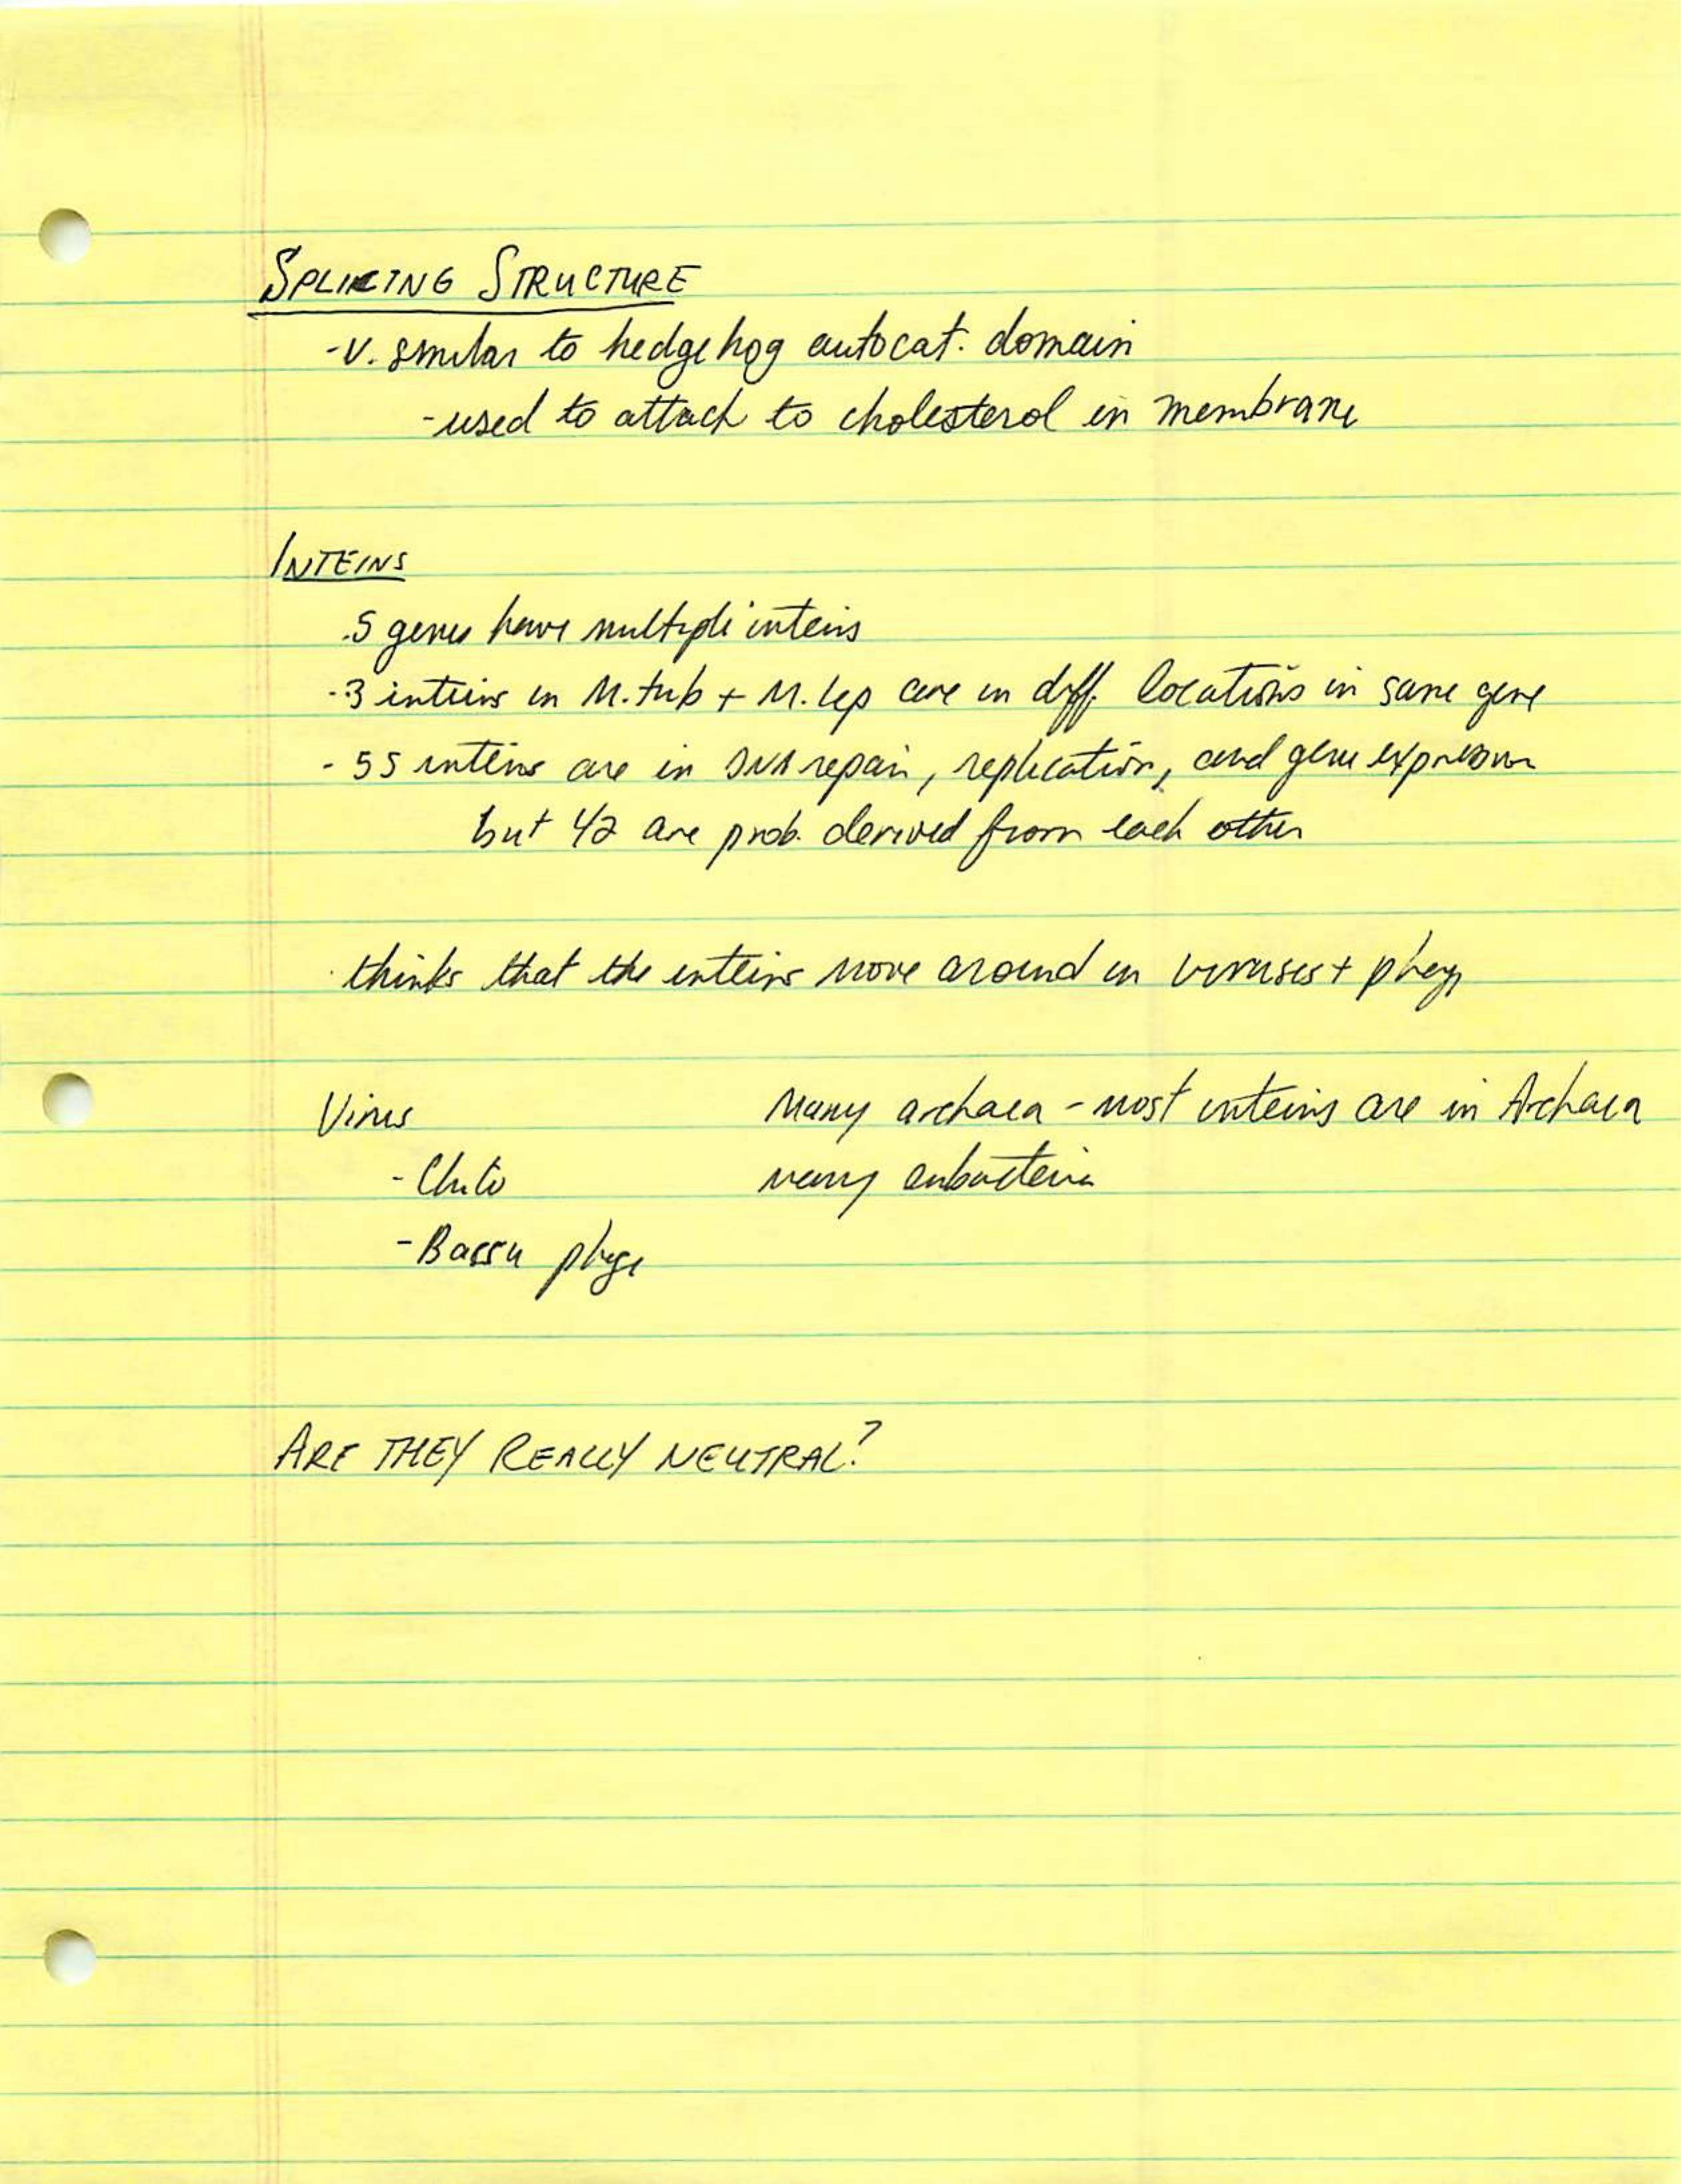 SPLICING STRUCTURE
- v. similar to hedgehog autocat. domain
- used to attach to cholesterol in membrane
INTEINS
. 5 genes have multiple inteins
- 3 inteins in M. tub + M. lep are in diff. locations in same gene
- 55 inteins are in DNA repair, replication, and gene expression
but 1/2 are prob. derived from each other
thinks that the inteins move around in viruses + phage
Virus
Many archaea - most inteins are in Archaea
- 
many eubacteria
- phage
ARE THEY REALLY NEUTRAL?